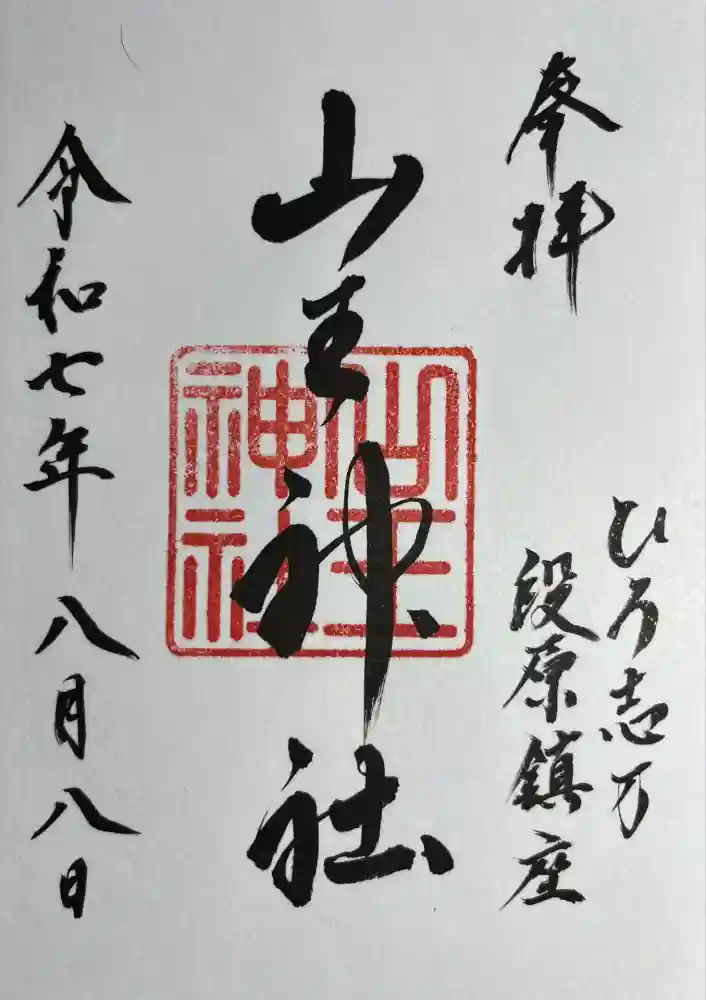 奉拝
ひろ志万
段原鎮座
山王神社
山王
神社
令和七年 八月八日